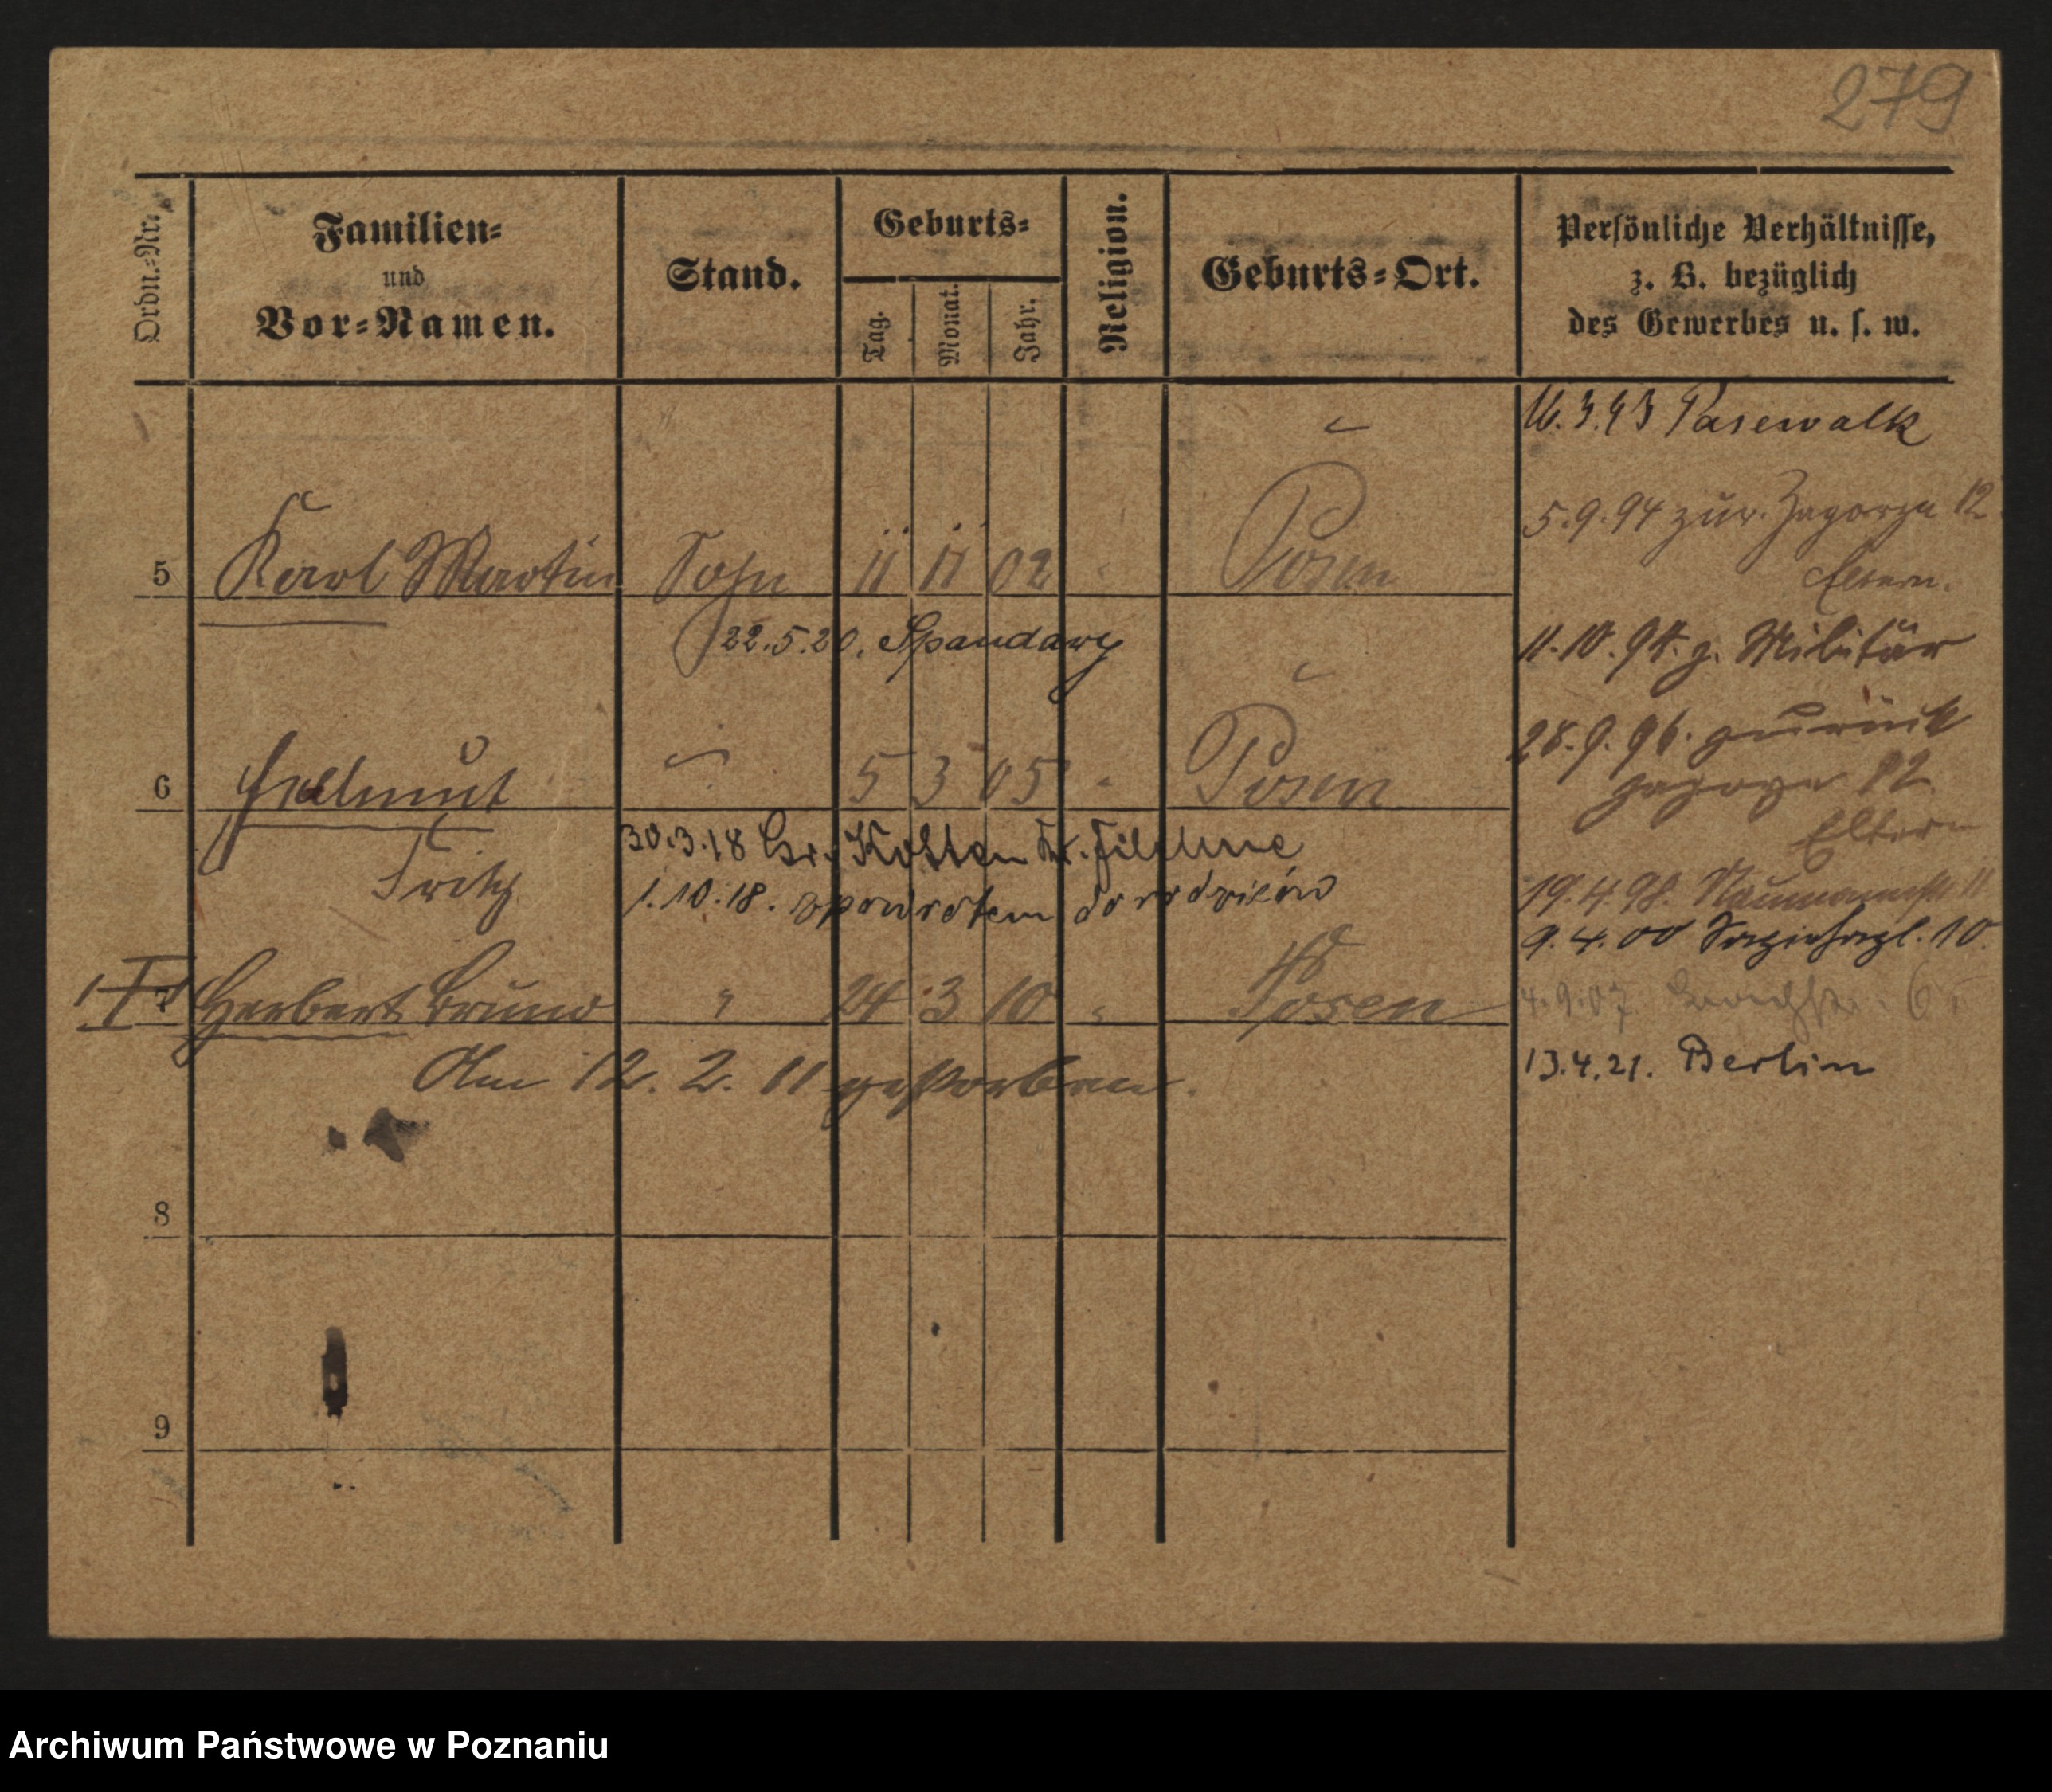 279
Ordn.-Nr.
Familien-
und
Vor-Namen.
Stand.
Geburts-
Tag.
Monat.
Jahr.
Religion.
Geburts-Ort.
Persönliche Verhältnisse,
z. B. bezüglich
des Gewerbes u. s. w.
5 Karl Martin Sohn 11 11 02 Posen
22.5.20. Spandawy
6 Helmut 5 3 05 " Posen
Fritz
30.3.18 Gr. Kotten Kr. Filehne
1.10.18. zpowrotem do rodziców
7 Herbert Bruno " 24 3 10 " Posen
Am 12. 2. 11 gestorben.
8
9
16.3.93 Pasewalk
5.9.94 zur. Zagorze 12
Eltern.
11.10.94. z. Militär
28.9.96. zurück
Zagorze 12
Eltern
19.4.98. Naumannstr. 11
9.4.00 10.
4.9.07
13.4.21. Berlin
Archiwum Państwowe w Poznaniu